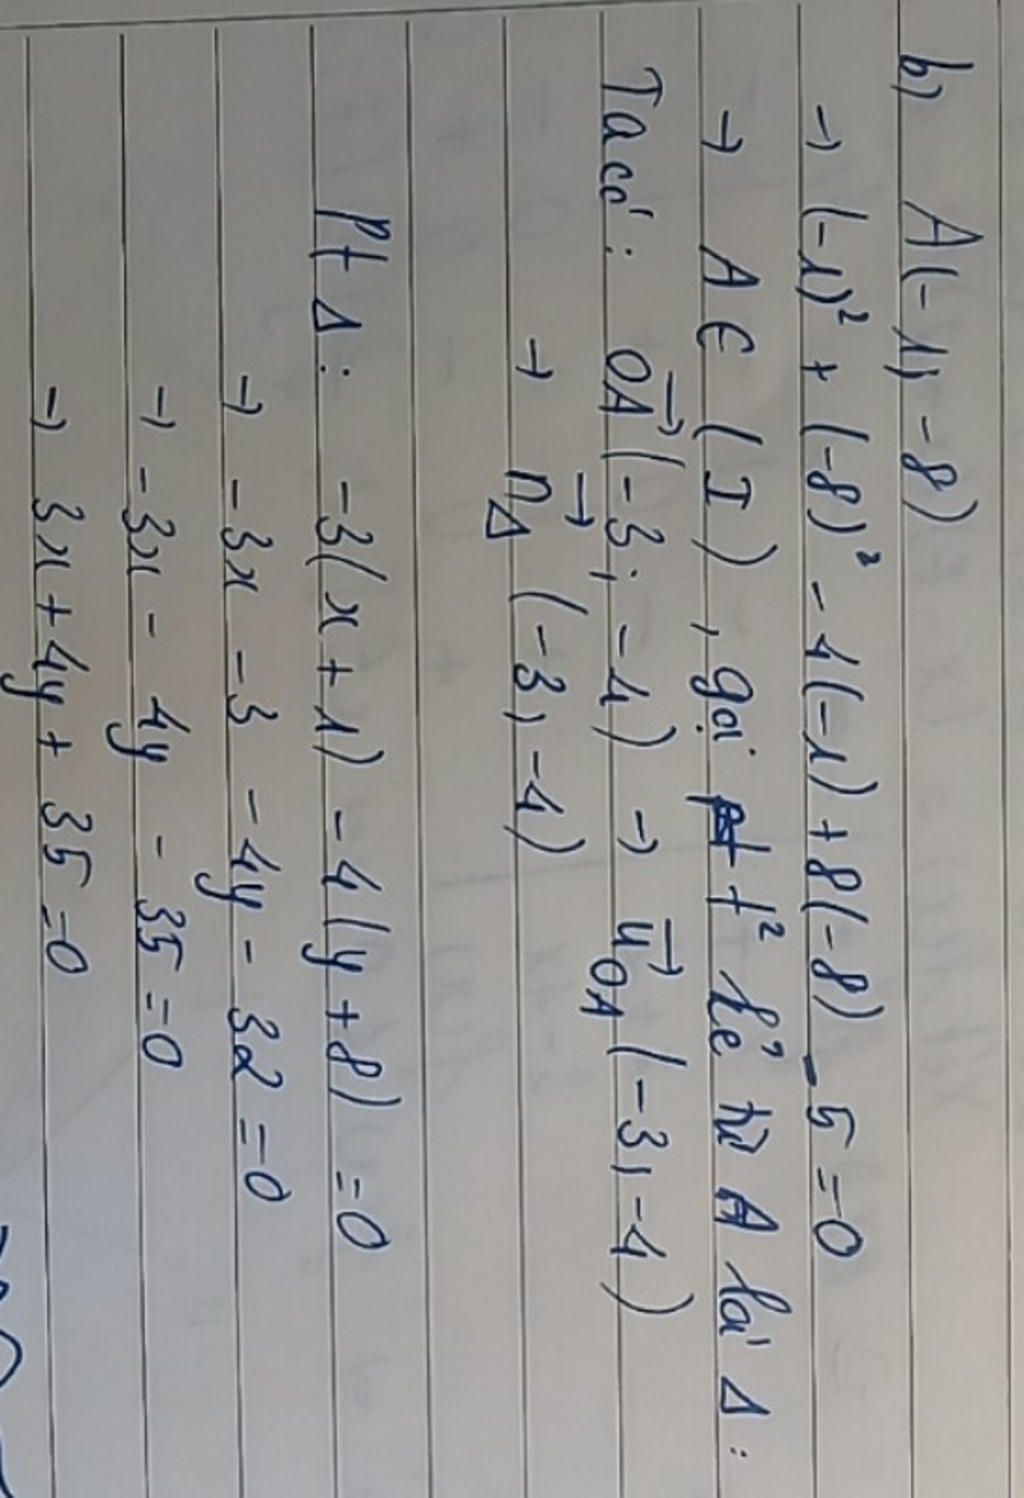 b) A(-1, -8)
→ (-1)² + (-8)² - 4(-1) + 8(-8) - 5 = 0
→ A ∈ (I), gọi t² kẻ từ A là Δ:
Ta có: OA→(-3; -4) → u→OA (-3, -4)
→ n→Δ (-3, -4)
Pt Δ: -3(x + 1) - 4(y + 8) = 0
→ -3x - 3 - 4y - 32 = 0
→ -3x - 4y - 35 = 0
→ 3x + 4y + 35 = 0